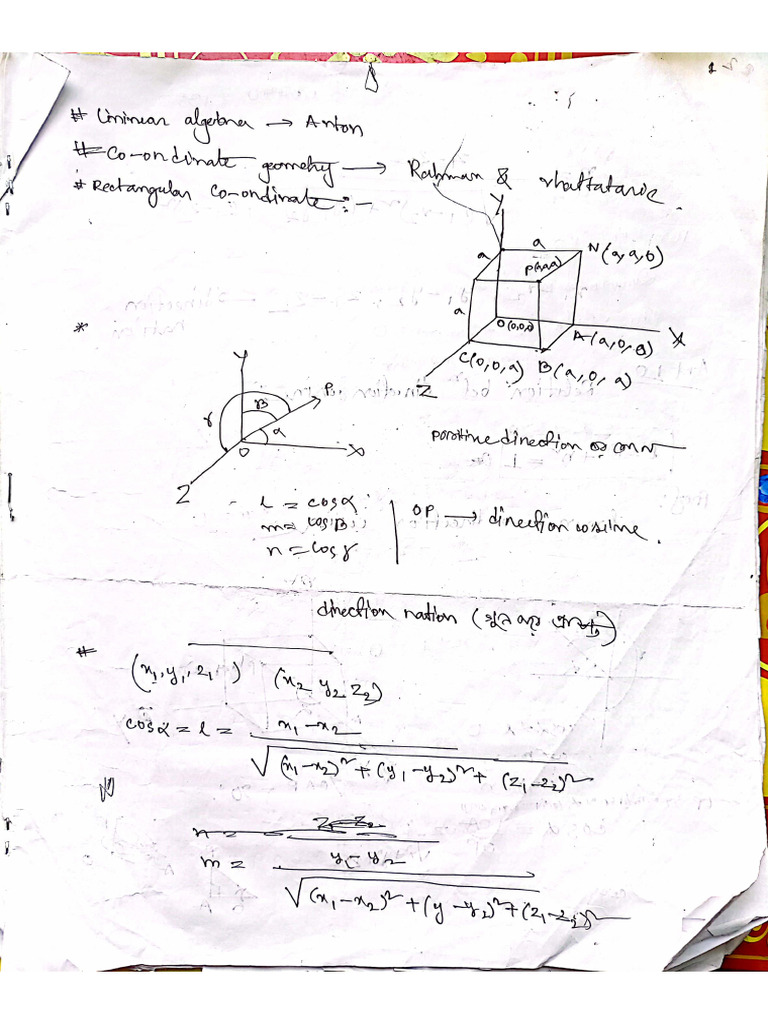 # Lininear algebra → Anton
# Co-ordinate geometry → Rahman &
# Rectangular Co-ordinate :-
Y
a
a
N (a, a, 0)
P(a,a,a)
a
O (0,0,0)
X
A (a, 0, 0)
C(0, 0, a)
B (a, 0, a)
Z
*
Y
P
β
γ
α
O
X
Z
positive direction
l = cosα
m = cosβ
n = cosγ
OP → direction cosine.
direction ration
#
(x₁, y₁, z₁) (x₂ y₂ z₂)
cosα = l = x₁ - x₂
√(x₁-x₂)² + (y₁-y₂)² + (z₁-z₂)²
n = z₁-z₂
m = y - y₂
√(x₁-x₂)² + (y-y₂)² + (z₁-z₂)²